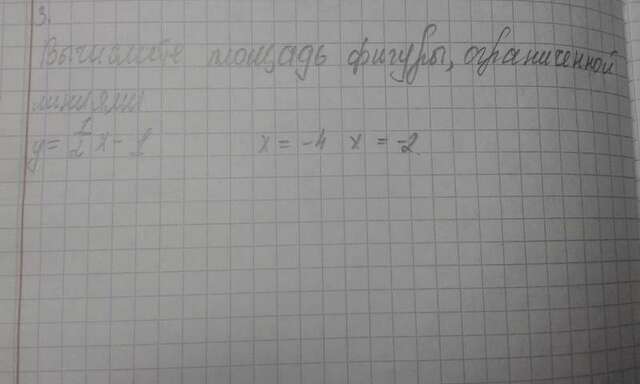 3.
Вычислите площадь фигуры, ограниченной
линиями
y = 1/2 x - 1 x = -4 x = -2